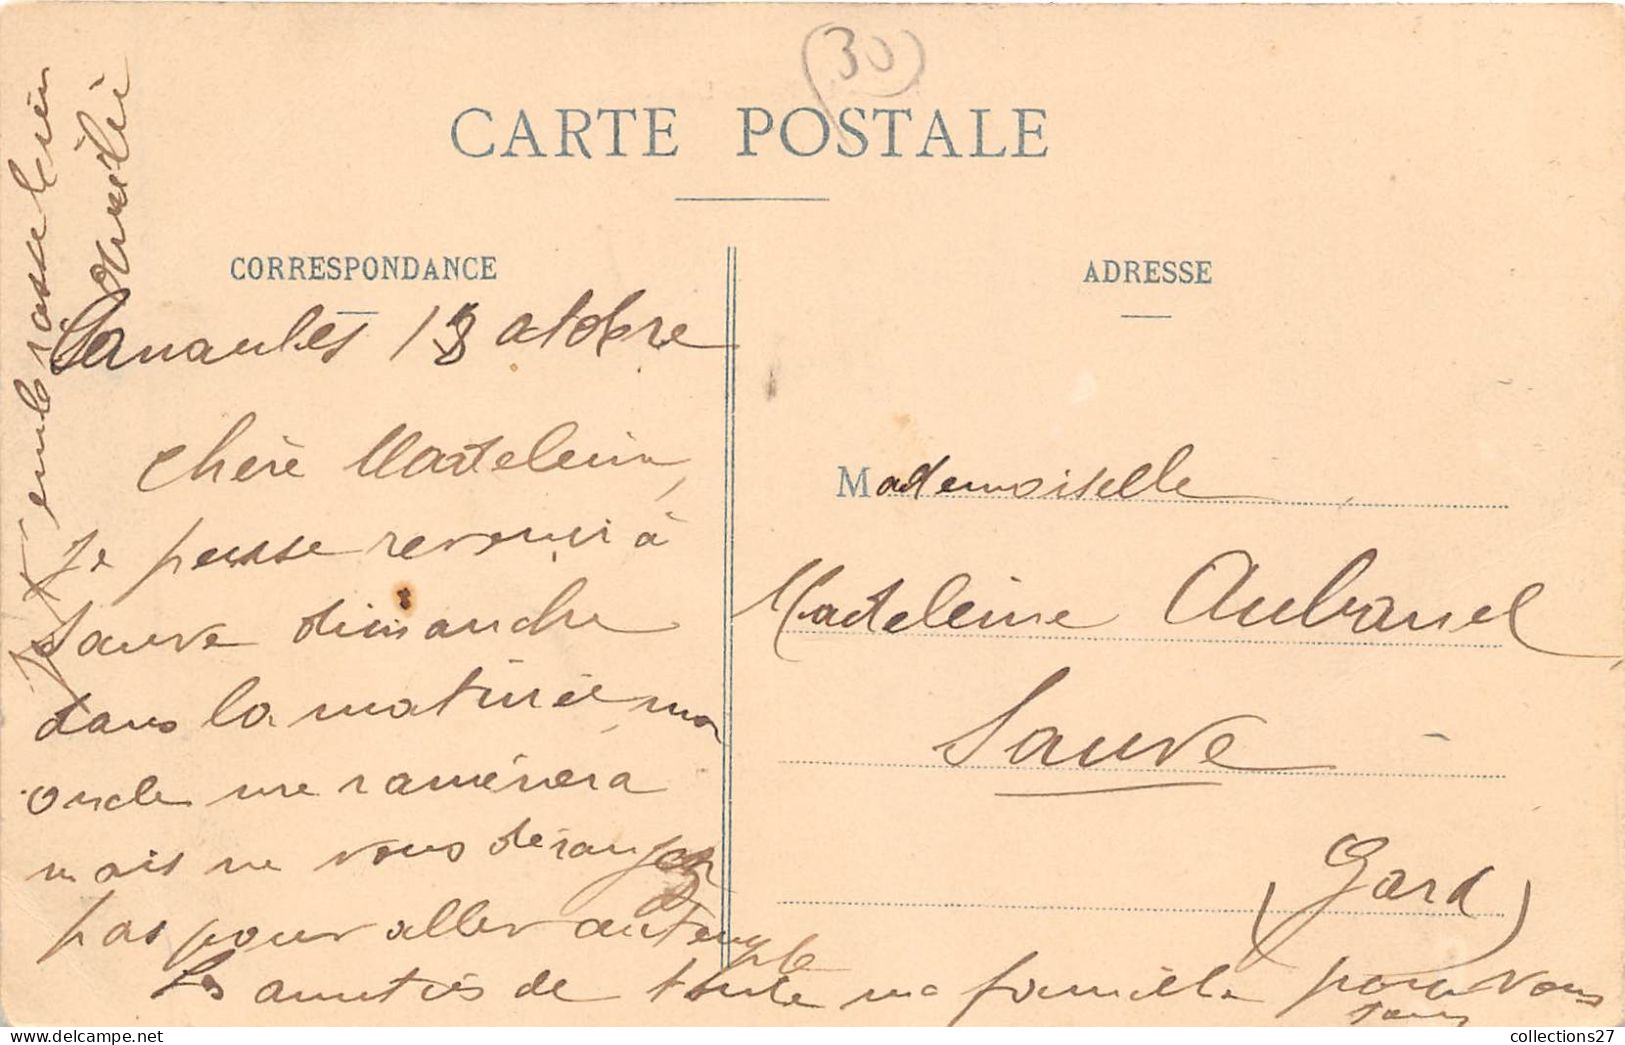 30
CARTE POSTALE
CORRESPONDANCE
ADRESSE
18 octobre
Chère Madeleine,
je pense revenir à
Sauve dimanche
dans la matinée mon
oncle me ramènera
mais ne vous dérangez
pas pour aller au temple
Les amitiés de toute ma famille pour vous
tous
Je t'embrasse bien
Mademoiselle
Madeleine Aubanel
Sauve
(Gard)
collections27